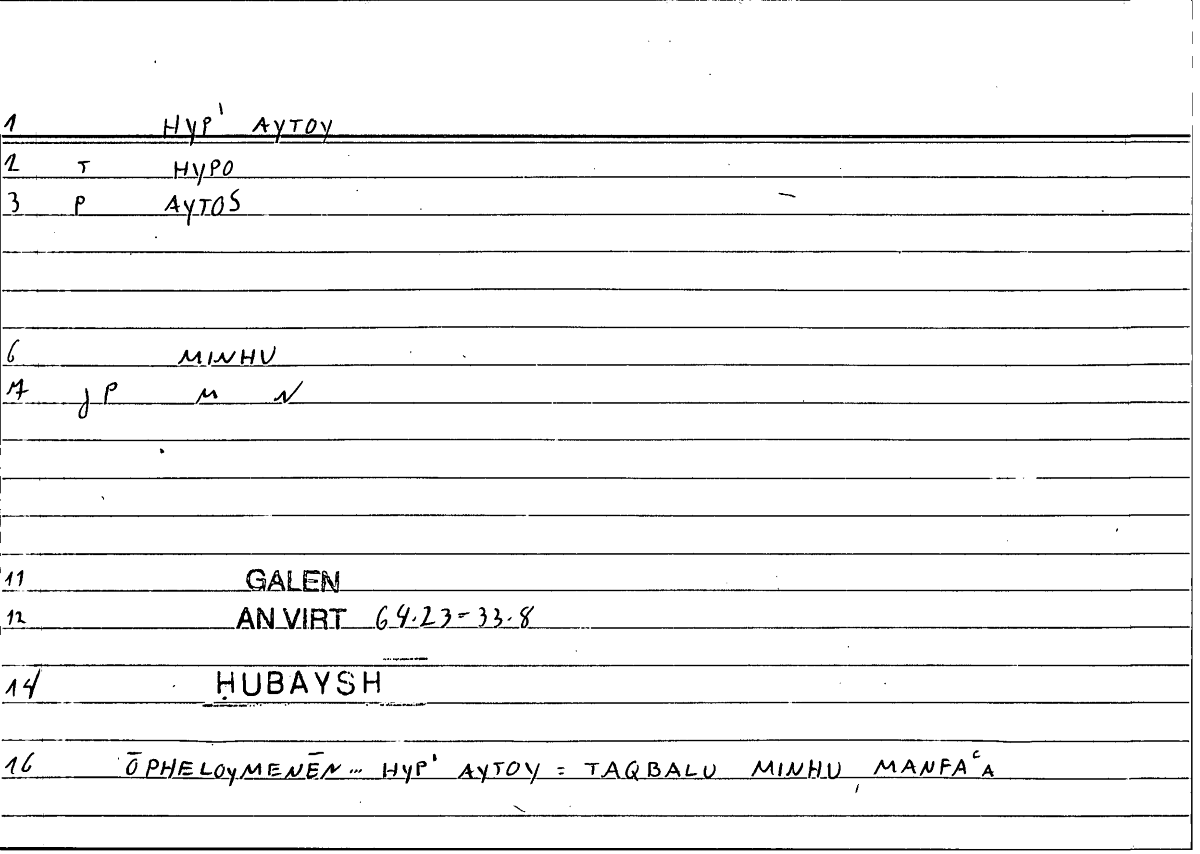 1 HYP' AYTOY
2 T HYPO
3 P AYTOS
6 MINHU
7 JP M N
11 GALEN
12 AN VIRT 64.23-33.8
14 ḤUBAYSH
16 ŌPHELOYMENĒN... HYP' AYTOY = TAQBALU MINHU MANFAʿA